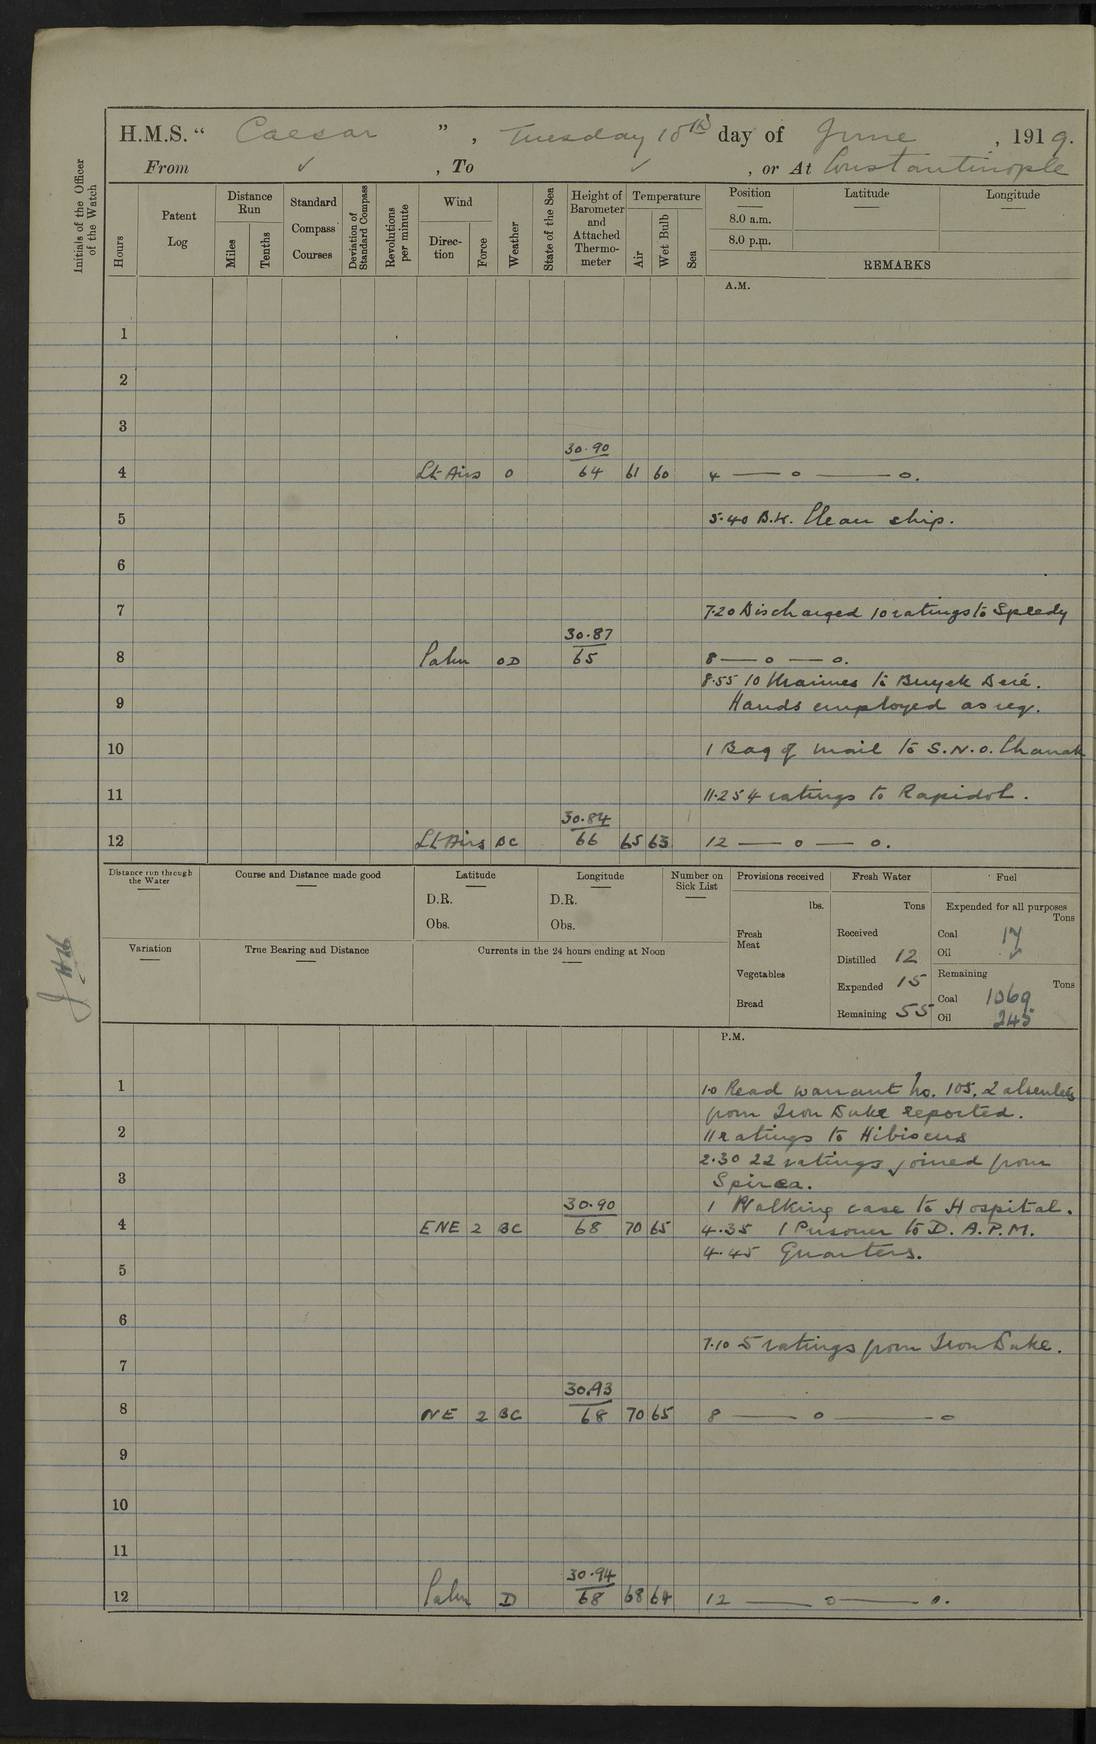 H.M.S. " Caesar ", Tuesday 10th day of June, 1919.
From ✓, To ✓, or At Constantinople
Initials of the Officer of the Watch
Hours
Patent Log
Distance Run
Miles
Tenths
Standard Compass Courses
Deviation of Standard Compass
Revolutions per minute
Wind
Direc-tion
Force
Weather
State of the Sea
Height of Barometer and Attached Thermo-meter
Temperature
Air
Wet Bulb
Sea
Position Latitude Longitude
8.0 a.m.
8.0 p.m.
REMARKS
A.M.
1
2
3
30.90
4 Lt Airs O 64 61 60 4 — o — o.
5 5.40 B.K. Clean ship.
6
7 7.20 Discharged 10 ratings to Speedy
30.87
8 Calm OD 65 8 — o — o.
8.55 10 Marines to Buyek Deré.
9 Hands employed as req.
10 1 Bag of mail to S.N.O. Chanak
11 11.25 4 ratings to Rapidol.
30.84
12 Lt Airs BC 66 65 63 12 — o — o.
Distance run through the Water
Course and Distance made good
Latitude
D.R.
Obs.
Longitude
D.R.
Obs.
Number on Sick List
Provisions received
lbs.
Fresh Meat
Vegetables
Bread
Fresh Water
Tons
Received
Distilled 12
Expended 15
Remaining 55
Fuel
Expended for all purposes
Tons
Coal 17
Oil ✓
Remaining
Tons
Coal 1069
Oil 245
Variation
True Bearing and Distance
Currents in the 24 hours ending at Noon
P.M.
1 1.0 Read warrant No. 105. 2 absentees
from Iron Duke reported.
2 11 ratings to Hibiscus
2.30 22 ratings joined from
3 Spirea.
30.90 1 Walking case to Hospital.
4 ENE 2 BC 68 70 65 4.35 1 Prisoner to D.A.P.M.
4.45 Quarters.
5
6
7.10 5 ratings from Iron Duke.
7
30.93
8 NE 2 BC 68 70 65 8 — o — o
9
10
11
30.94
12 Calm D 68 68 64 12 — o — o.